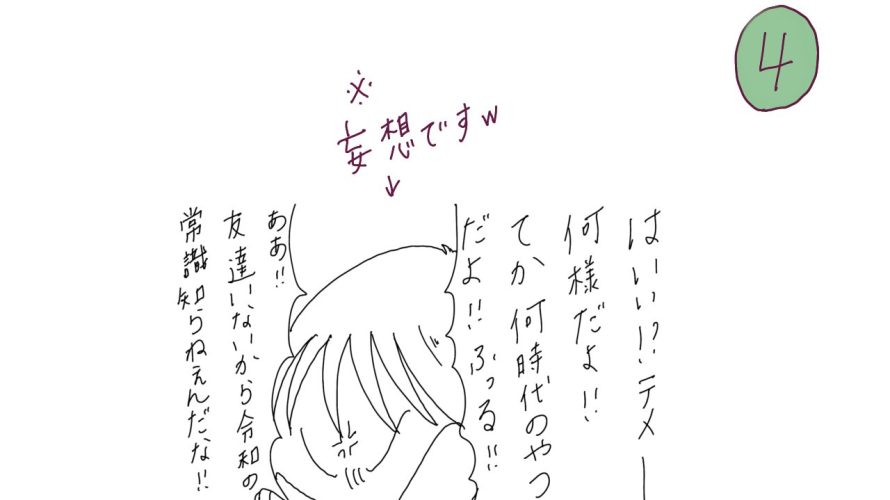 4
※
妄想ですw
↓
はいい!?テメー
何様だよ!!
てか何時代のやつ
だよ!!ふっる!!
ああ!!
友達いないから令和の
常識知らねぇんだな!!